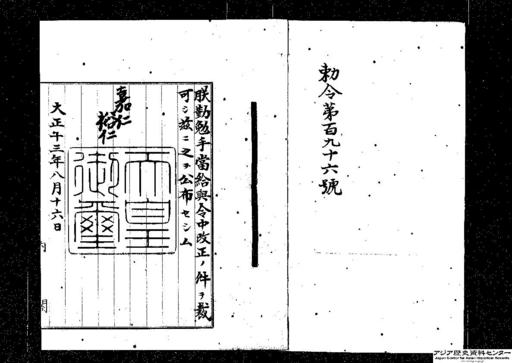 勅令第百九十六號
朕勤勉手當給與令中改正ノ件ヲ裁
可シ茲ニ之ヲ公布セシム
嘉仁
裕仁
天皇
御璽
大正十三年八月十六日
内閣
アジア歴史資料センター
Japan Center for Asian Historical Records